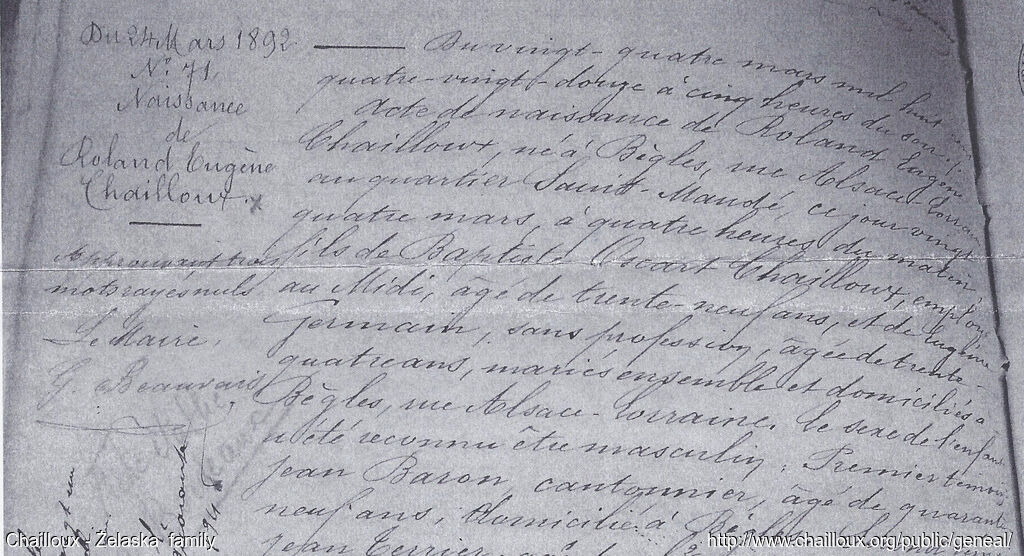 Du 24 Mars 1892
N° 71
Naissance
de
Roland Eugène
Chailloux. x
Approuvant trois
mots rayés nuls
Le Maire,
G. Beauvais
Du vingt-quatre mars mil huit cent
quatre-vingt-douze à cinq heures du soir.
Acte de naissance de Roland Eugène
Chailloux, né à Bègles, rue Alsace-Lorraine
au quartier Saint-Maudé, ce jour vingt
quatre mars, à quatre heures du matin,
fils de Baptiste Oscart Chailloux, employé
au Midi, âgé de trente-neuf ans, et de Eugénie
Germain, sans profession, âgée de trente-
quatre ans, mariés ensemble et domiciliés à
Bègles, rue Alsace-Lorraine. Le sexe de l'enfant
a été reconnu être masculin. Premier témoin:
Jean Baron, cantonnier, âgé de quarante
neuf ans, domicilié à Bègles
Jean Terrier,
Chailloux - Želaska family
http://www.chailloux.org/public/geneal/